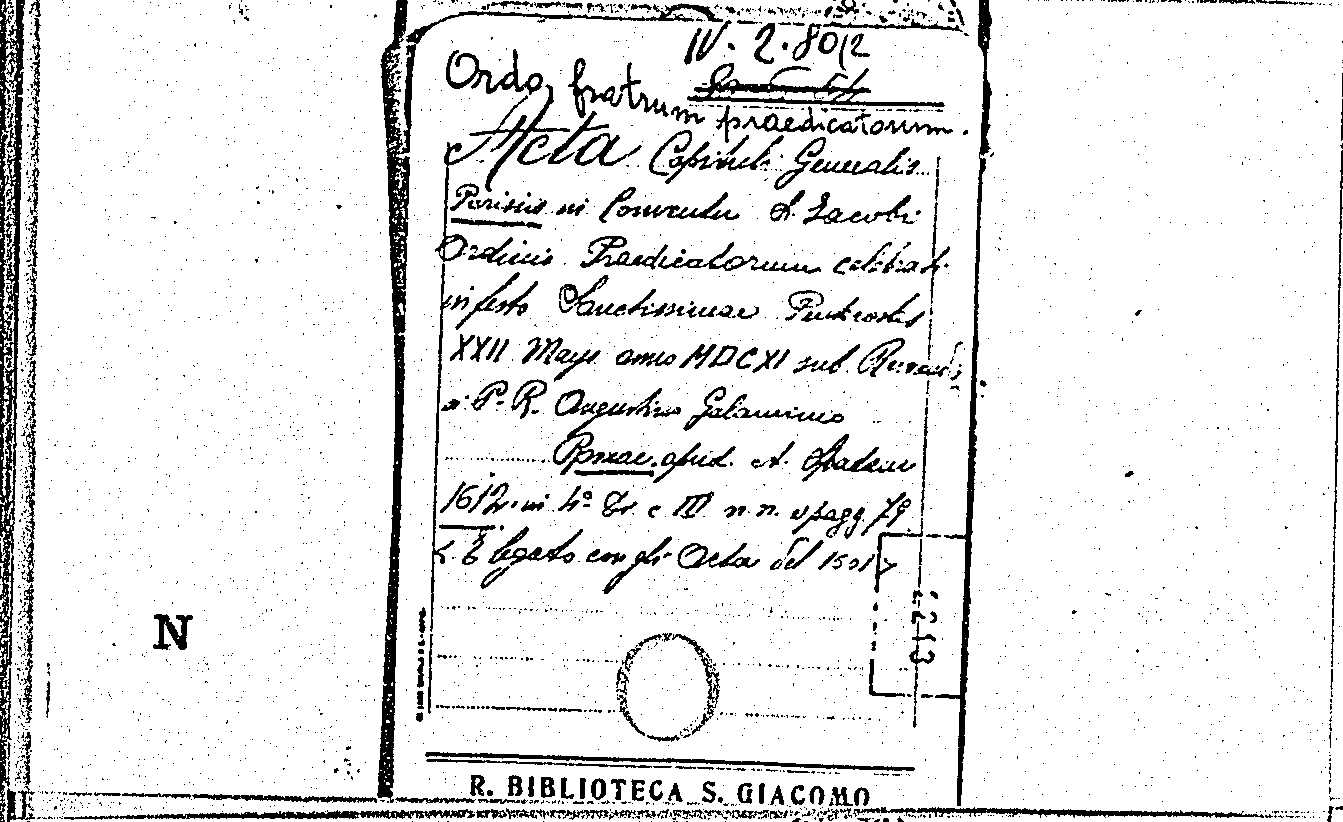 IV. 2. 80(2
Ordo fratrum praedicatorum.
Acta Capituli Generalis
Parisiis in Conventu S. Jacobi
Ordinis Praedicatorum celebrati
in festo Sanctissimae Pentecostes
XXII Mays anno MDCXI sub Reverendis
P. R. Augustino Galaminio
Romae. apud. A. Spadam
1612. in 4º Tr. c III n. n. e pagg. 79
< È legato con gli Acta del 1501 >
2213
N
R. BIBLIOTECA S. GIACOMO